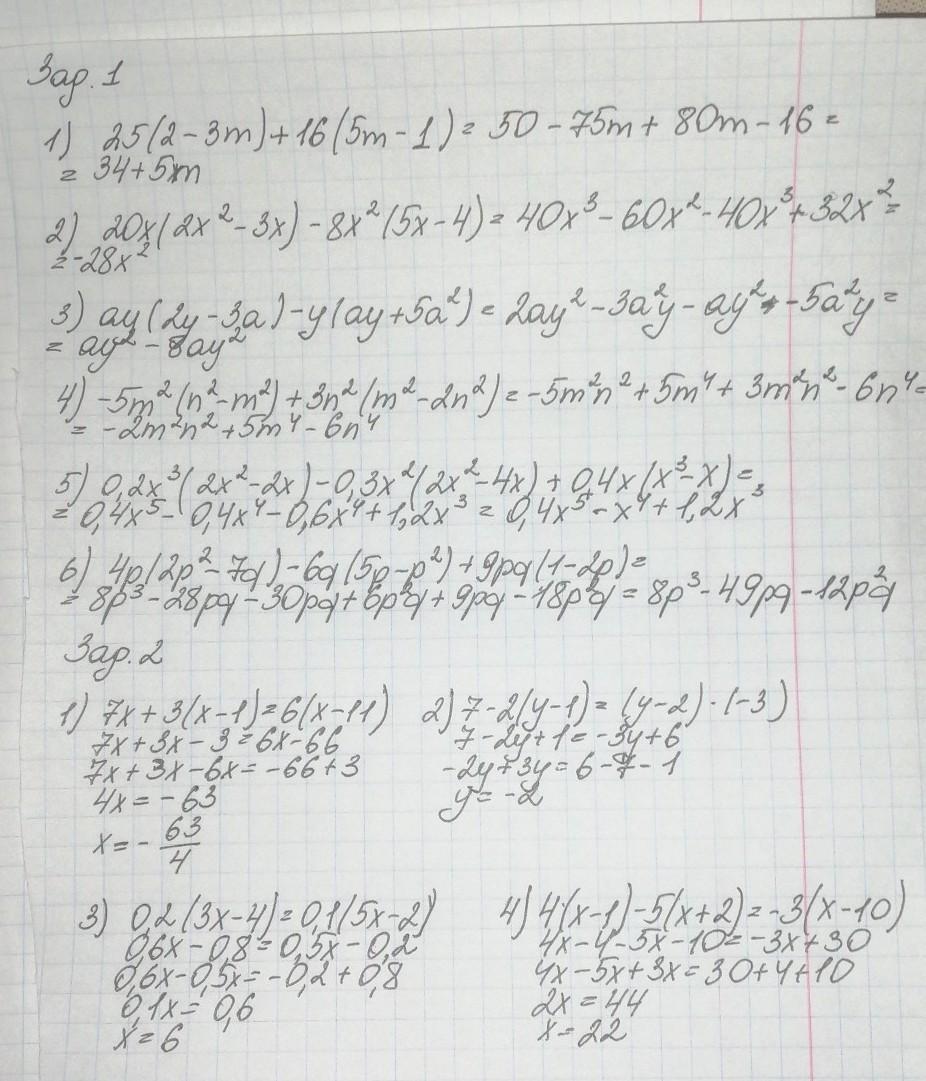 Зад. 1
1) 25(2-3m)+16(5m-1)= 50-75m+80m-16=
= 34+5m
2) 20x(2x²-3x)-8x²(5x-4)=40x³-60x²-40x³+32x²=
=-28x²
3) ay(2y-3a)-y(ay+5a²)=2ay²-3a²y-ay²-5a²y=
= ay²-8ay²
4) -5m²(n²-m²)+3n²(m²-2n²)=-5m²n²+5m⁴+3m²n²-6n⁴=
= -2m²n²+5m⁴-6n⁴
5) 0,2x³(2x²-2x)-0,3x²(2x²-4x)+0,4x(x³-x)=
= 0,4x⁵-0,4x⁴-0,6x⁴+1,2x³=0,4x⁵-x⁴+1,2x³
6) 4p(2p²-7q)-6q(5p-p²)+9pq(1-2p)=
= 8p³-28pq-30pq+6p²q+9pq-18p²q=8p³-49pq-12p²q
Зад. 2
1) 7x+3(x-1)=6(x-11)
7x+3x-3=6x-66
7x+3x-6x=-66+3
4x=-63
x=-63/4
2) 7-2(y-1)=(y-2)·(-3)
7-2y+1=-3y+6
-2y+3y=6-7-1
y=-2
3) 0,2(3x-4)=0,1(5x-2)
0,6x-0,8=0,5x-0,2
0,6x-0,5x=-0,2+0,8
0,1x=0,6
x=6
4) 4(x-1)-5(x+2)=-3(x-10)
4x-4-5x-10=-3x+30
4x-5x+3x=30+4+10
2x=44
x=22